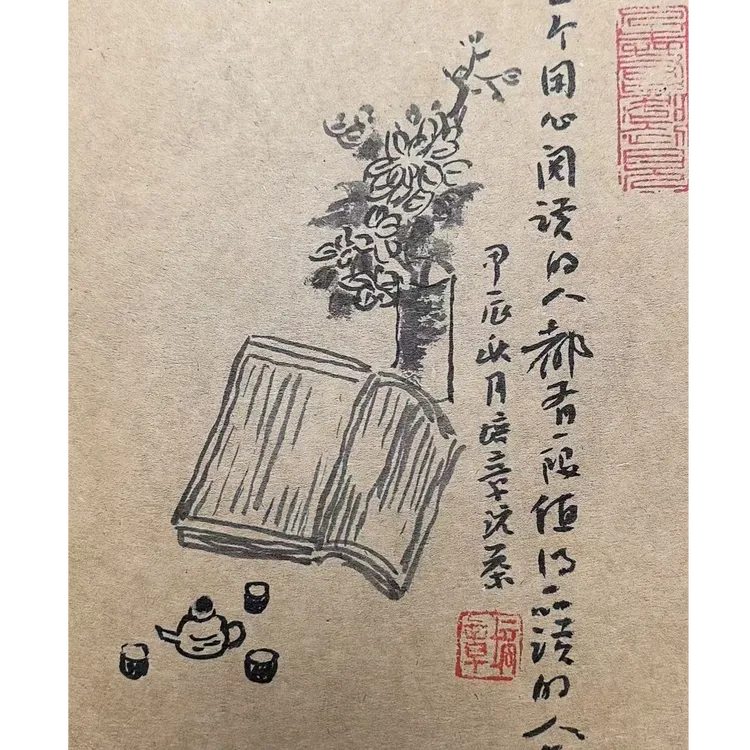 个用心阅读的人都有一段值得品读的人
甲辰秋月培章